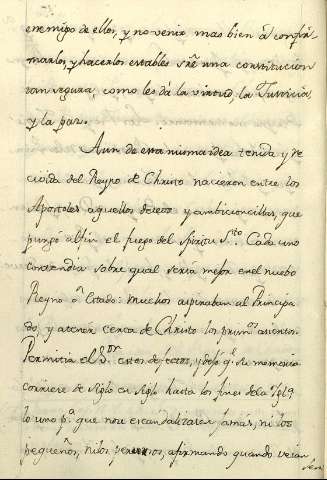 enemigo de ellos, y no venir mas bien á confir-
marlos, y hacerlos estables sre una constitucion
tan segura, como les dá la virtud, la Justicia,
y la paz.
Aun de esta misma idea tenida y re-
civida del Reyno de Christo nacieron entre los
Apostoles aquellos deseos y ambicioncillas, que
purgó al fin el fuego del Spiritu Sto. Cada uno
contendia sobre qual seria mejor en el nuebo
Reyno ó Estado: muchos aspiraban al Principa-
do, y a tener cerca de Christo los primos asientos.
Permitia el Sor estos defectos, y dejó qe su memoria
corriese de siglo en siglo hasta los fines de la Iglª
lo uno pª que nos escandalizasen jamás, ni los
pequeños, ni los perversos, afirmando quando veian